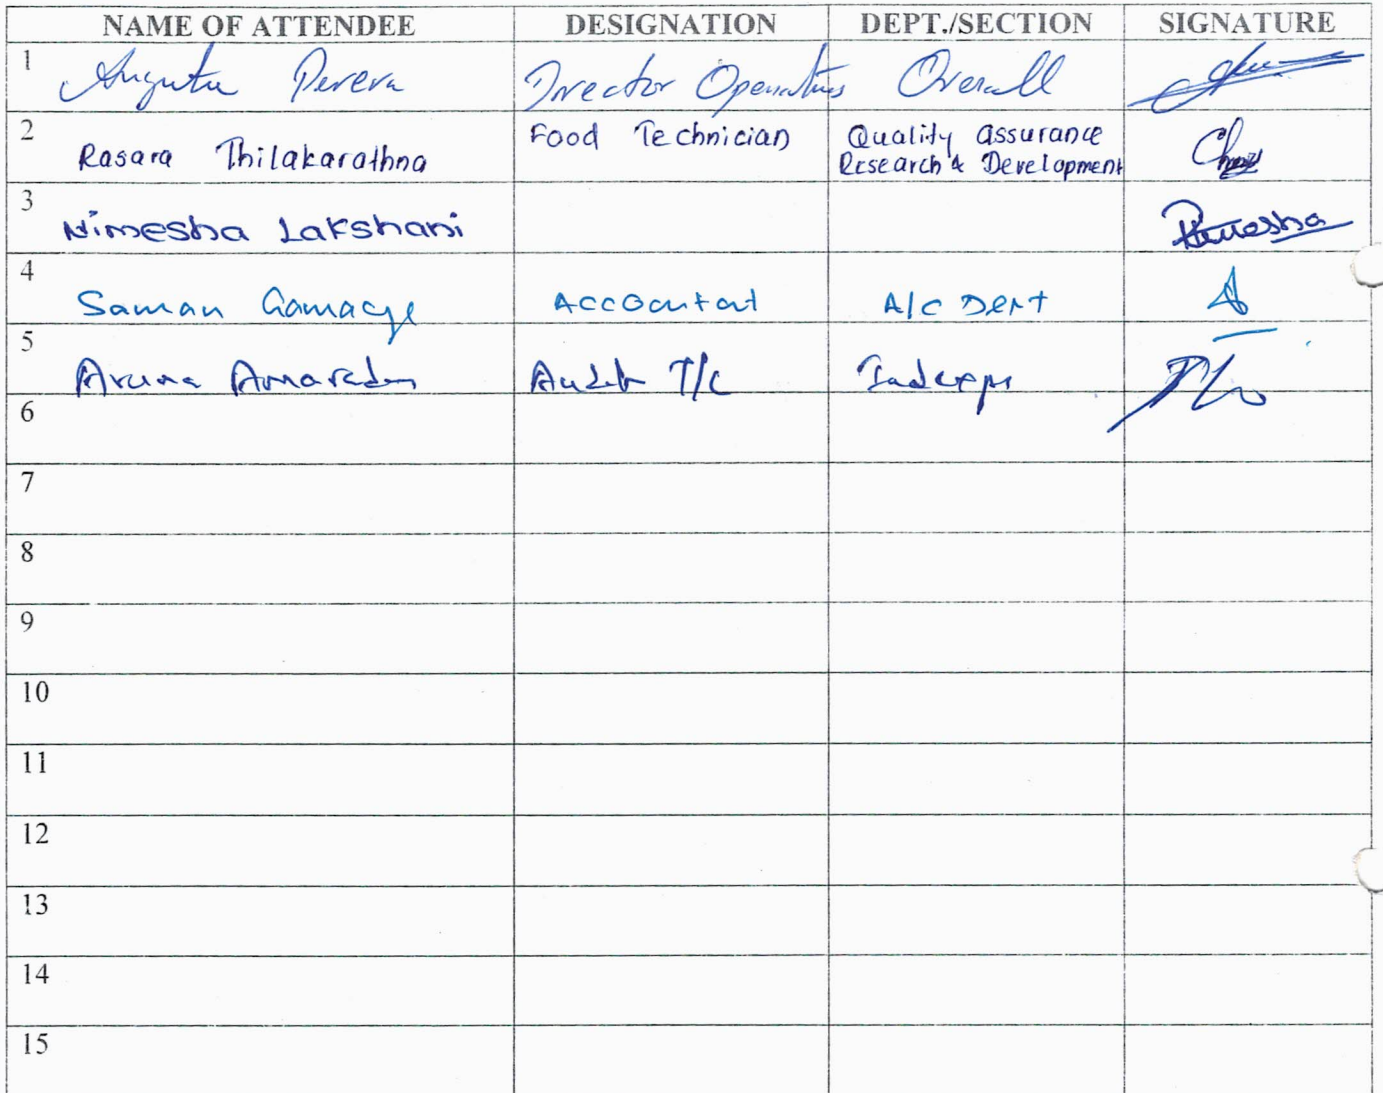 NAME OF ATTENDEE DESIGNATION DEPT./SECTION SIGNATURE
1 Perera Director Operations Overall
2 Rasara Thilakarathna Food Technician Quality assurance
Research & Development
3 Nimesha Lakshani
4 Saman Gamage Accountant A/C Dept
5 Aruna
6
7
8
9
10
11
12
13
14
15